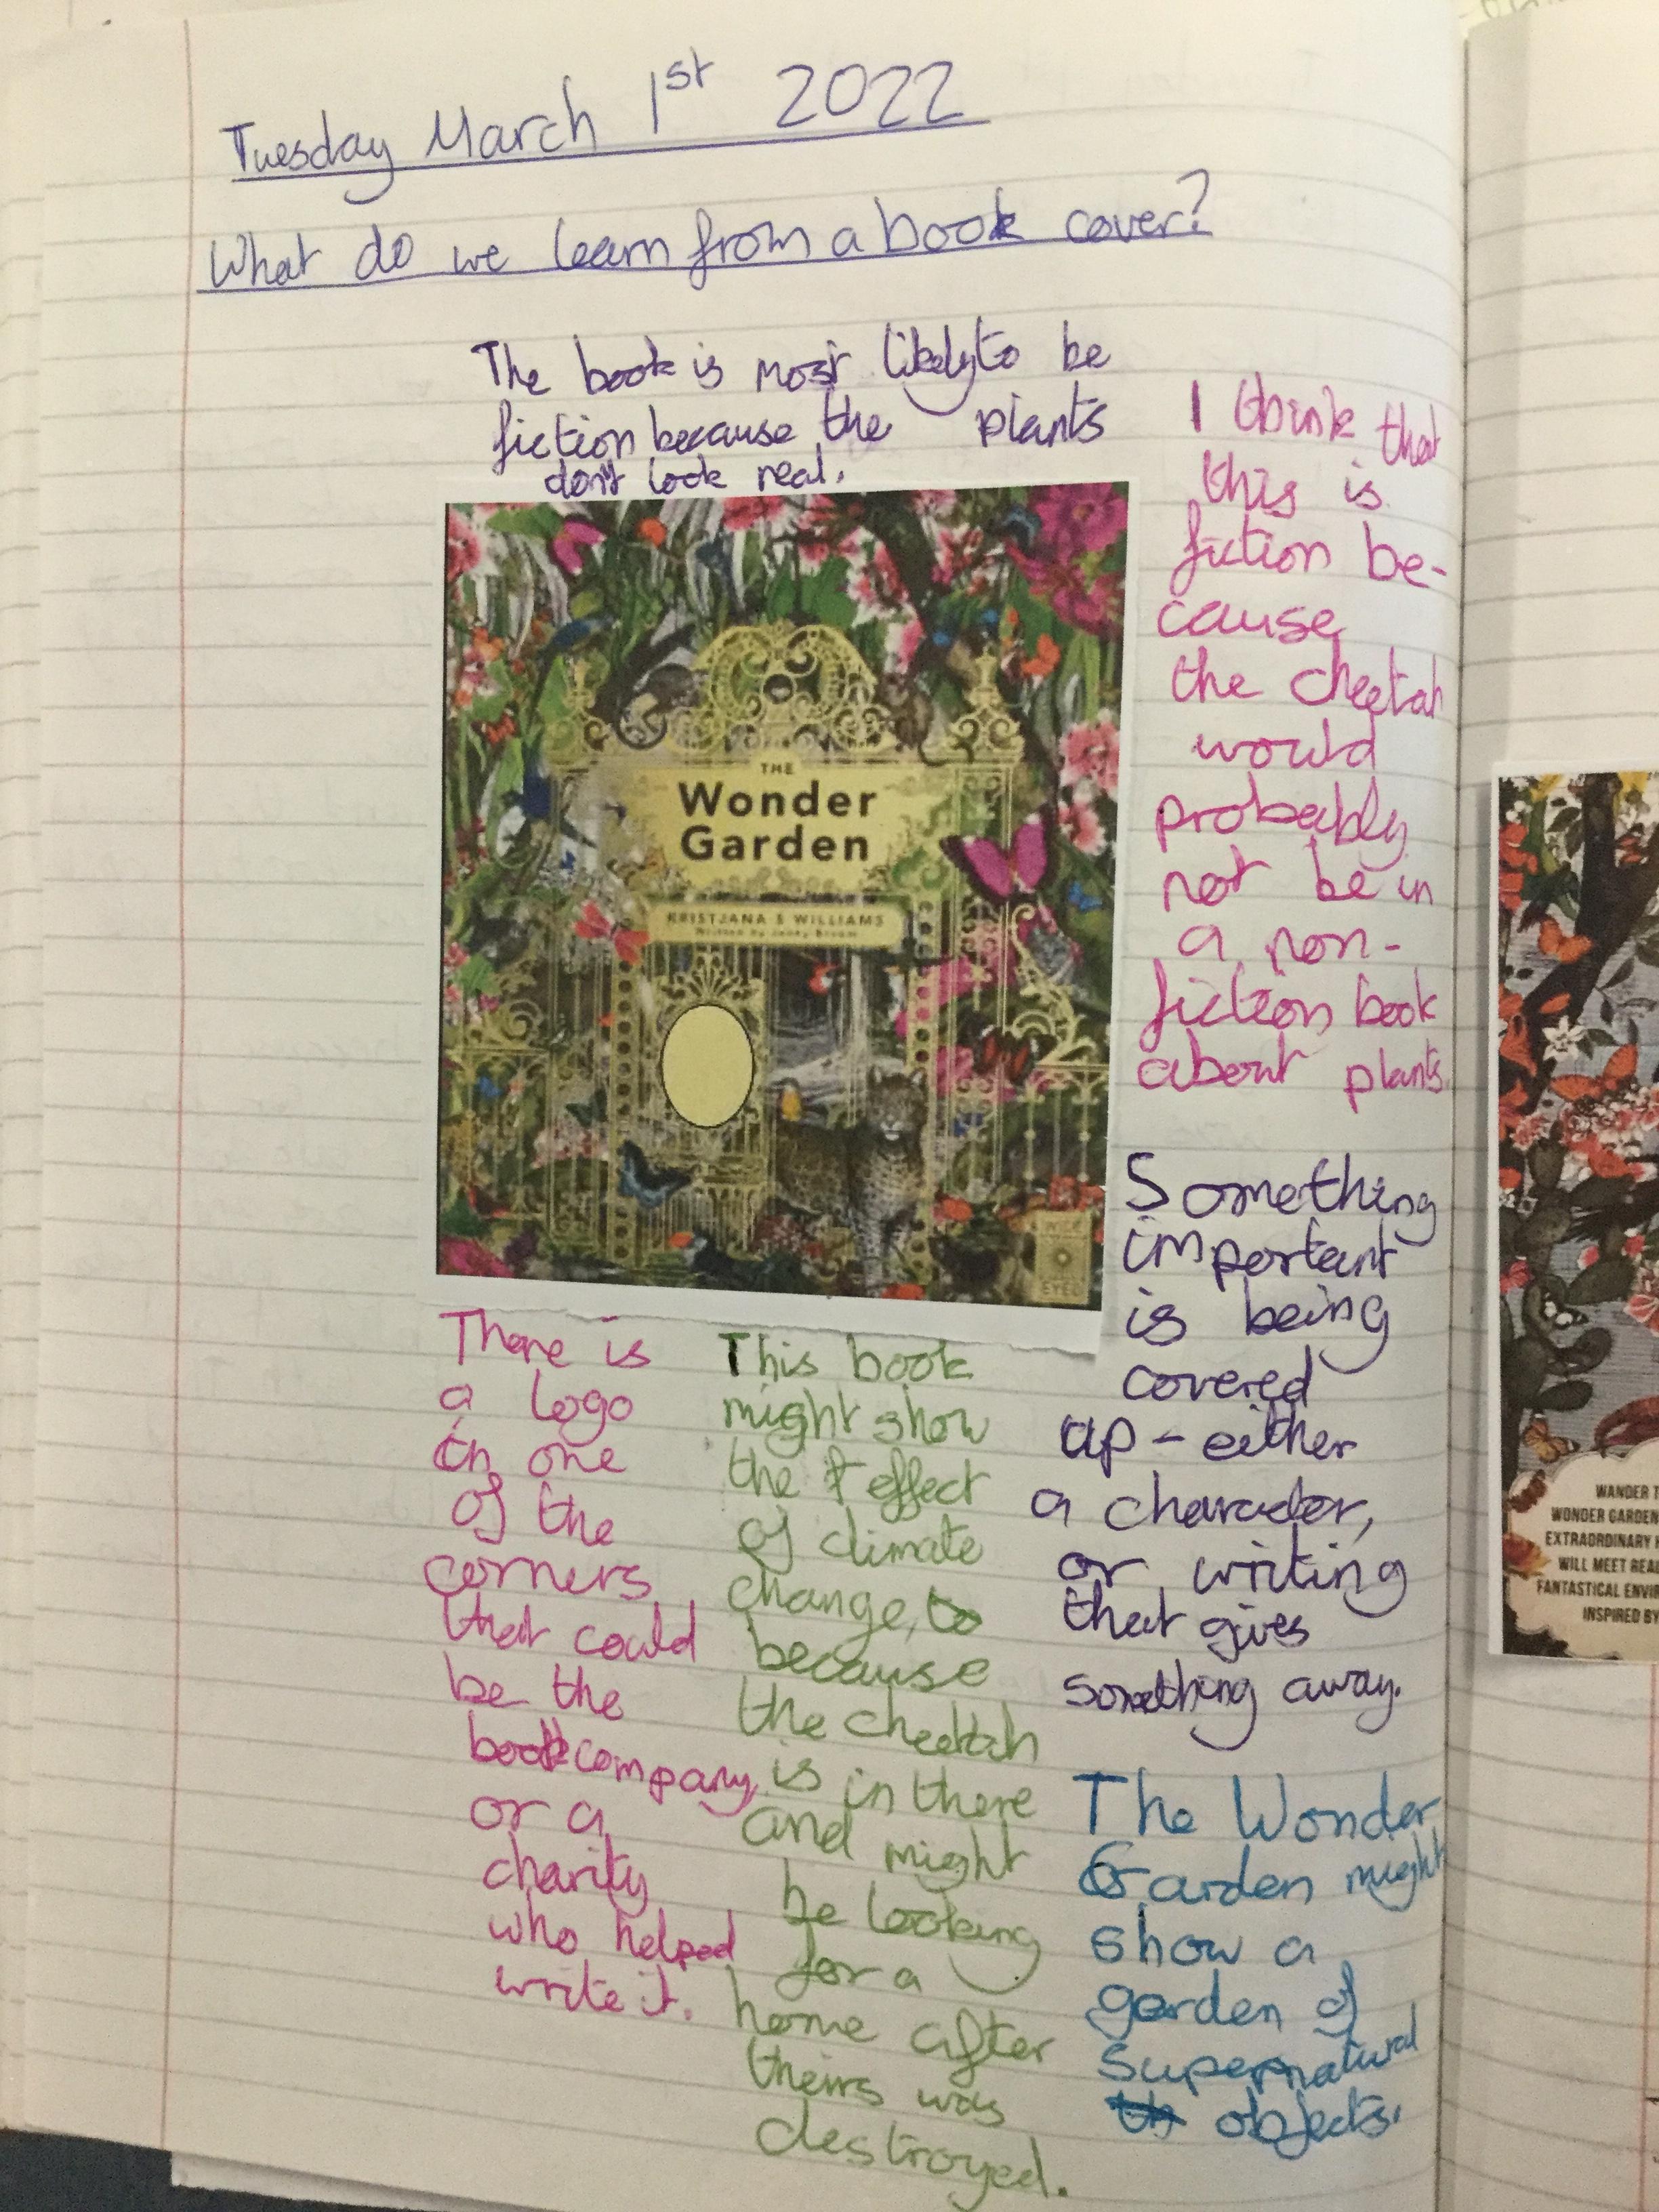 Tuesday March 1st 2022
What do we learn from a book cover?
The book is most likely to be
fiction because the plants
don't look real.
THE
Wonder
Garden
KRISTJANA S WILLIAMS
Written by Jenny Broom
WIDE
EYED
I think that
this is
fiction be-
cause
the cheetah
would
probably
not be in
a non-
fiction book
about plants.
Something
important
is being
covered
up - either
a character,
or writing
that gives
something away.
There is
a logo
in one
of the
corners
that could
be the
book company
or a
charity
who helped
write it.
This book
might show
the effect
of climate
change,
because
the cheetah
is in there
and might
be looking
for a
home after
theirs was
destroyed.
The Wonder
Garden might
show a
garden of
supernatural
objects.
WANDER T
WONDER GARDEN
EXTRAORDINARY H
WILL MEET REA
FANTASTICAL ENVIR
INSPIRED BY